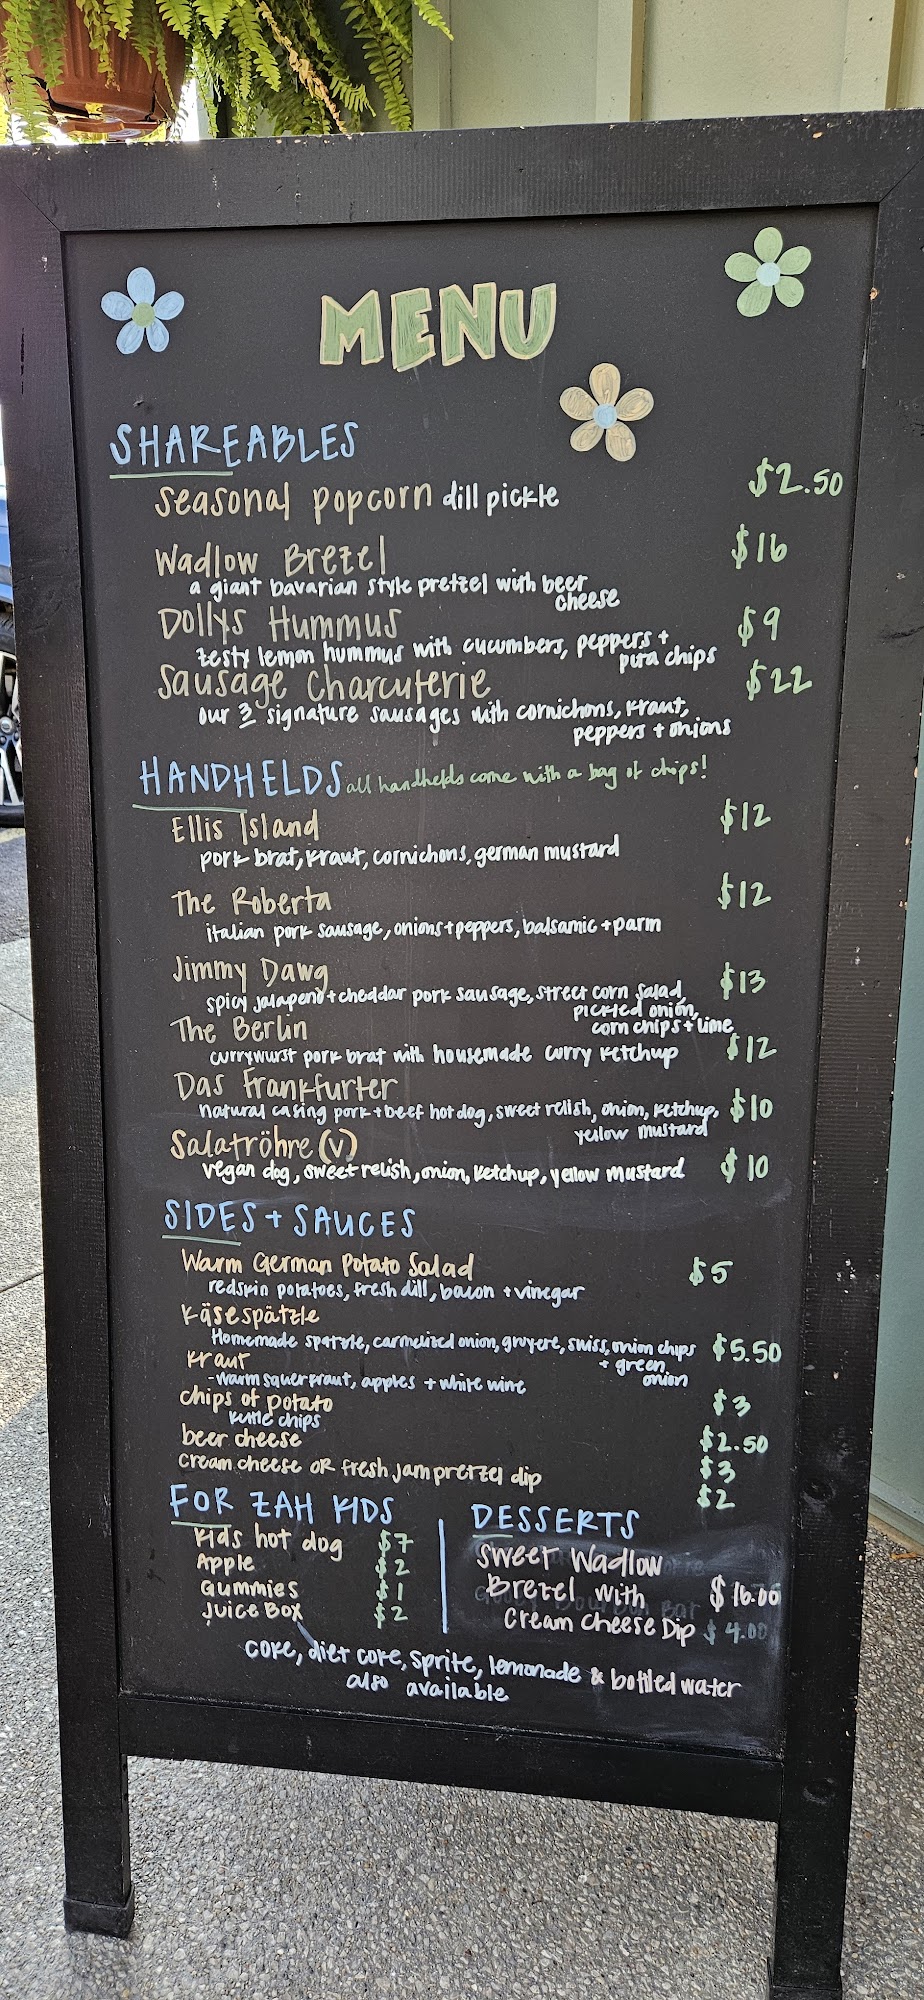 MENU
SHAREABLES
seasonal popcorn dill pickle $2.50
Wadlow Brezel $16
a giant bavarian style pretzel with beer
cheese
Dollys Hummus $9
zesty lemon hummus with cucumbers, peppers +
pita chips
Sausage Charcuterie $22
our 3 signature sausages with cornichons, kraut,
peppers + onions
HANDHELDS all handhelds come with a bag of chips!
Ellis Island $12
pork brat, kraut, cornichons, german mustard
The Roberta $12
italian pork sausage, onions + peppers, balsamic + parm
Jimmy Dawg $13
spicy jalapeno + cheddar pork sausage, street corn salad,
pickled onion,
corn chips + lime
The Berlin $12
currywurst pork brat with housemade curry ketchup
Das Frankfurter $10
natural casing pork + beef hot dog, sweet relish, onion, ketchup,
yellow mustard
Salatröhre (v) $10
vegan dog, sweet relish, onion, ketchup, yellow mustard
SIDES + SAUCES
Warm German Potato Salad $5
redskin potatoes, fresh dill, bacon + vinegar
Käsespätzle $5.50
Homemade spatzle, carmelized onion, gruyere, swiss, onion chips
+ green
onion
kraut $3
- warm sauerkraut, apples + white wine
chips of potato $2.50
kettle chips
beer cheese $3
cream cheese OR fresh jam pretzel dip $2
FOR ZAH KIDS
kids hot dog $7
Apple $2
Gummies $1
Juice Box $2
DESSERTS
Sweet Wadlow
Brezel with $16.00
Cream Cheese Dip $4.00
coke, diet coke, sprite, lemonade & bottled water
also available